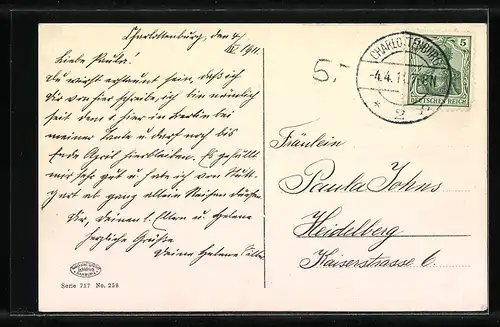 Charlottenburg, den 4./
IV. 1911.
Liebe Paula!
Du wirst erstaunt sein, daß ich
Dir von hier schreibe, ich bin nämlich
seit dem 1. hier in Berlin bei
meiner Tante u. darf noch bis
Ende April hierbleiben. Es gefällt
mir sehr gut u. habe ich von Stutt-
gart ab ganz allein reisen dürfen.
Dir, Deinen l. Eltern u. Helene
herzliche Grüße
Deine Helene
Serie 717 No. 258
5,-
CHARLOTTENBURG
-4.4.11. 7-8N.
* 2
5
DEUTSCHES REICH
Fräulein
Paula Johns
Heidelberg
Kaiserstrasse 6.